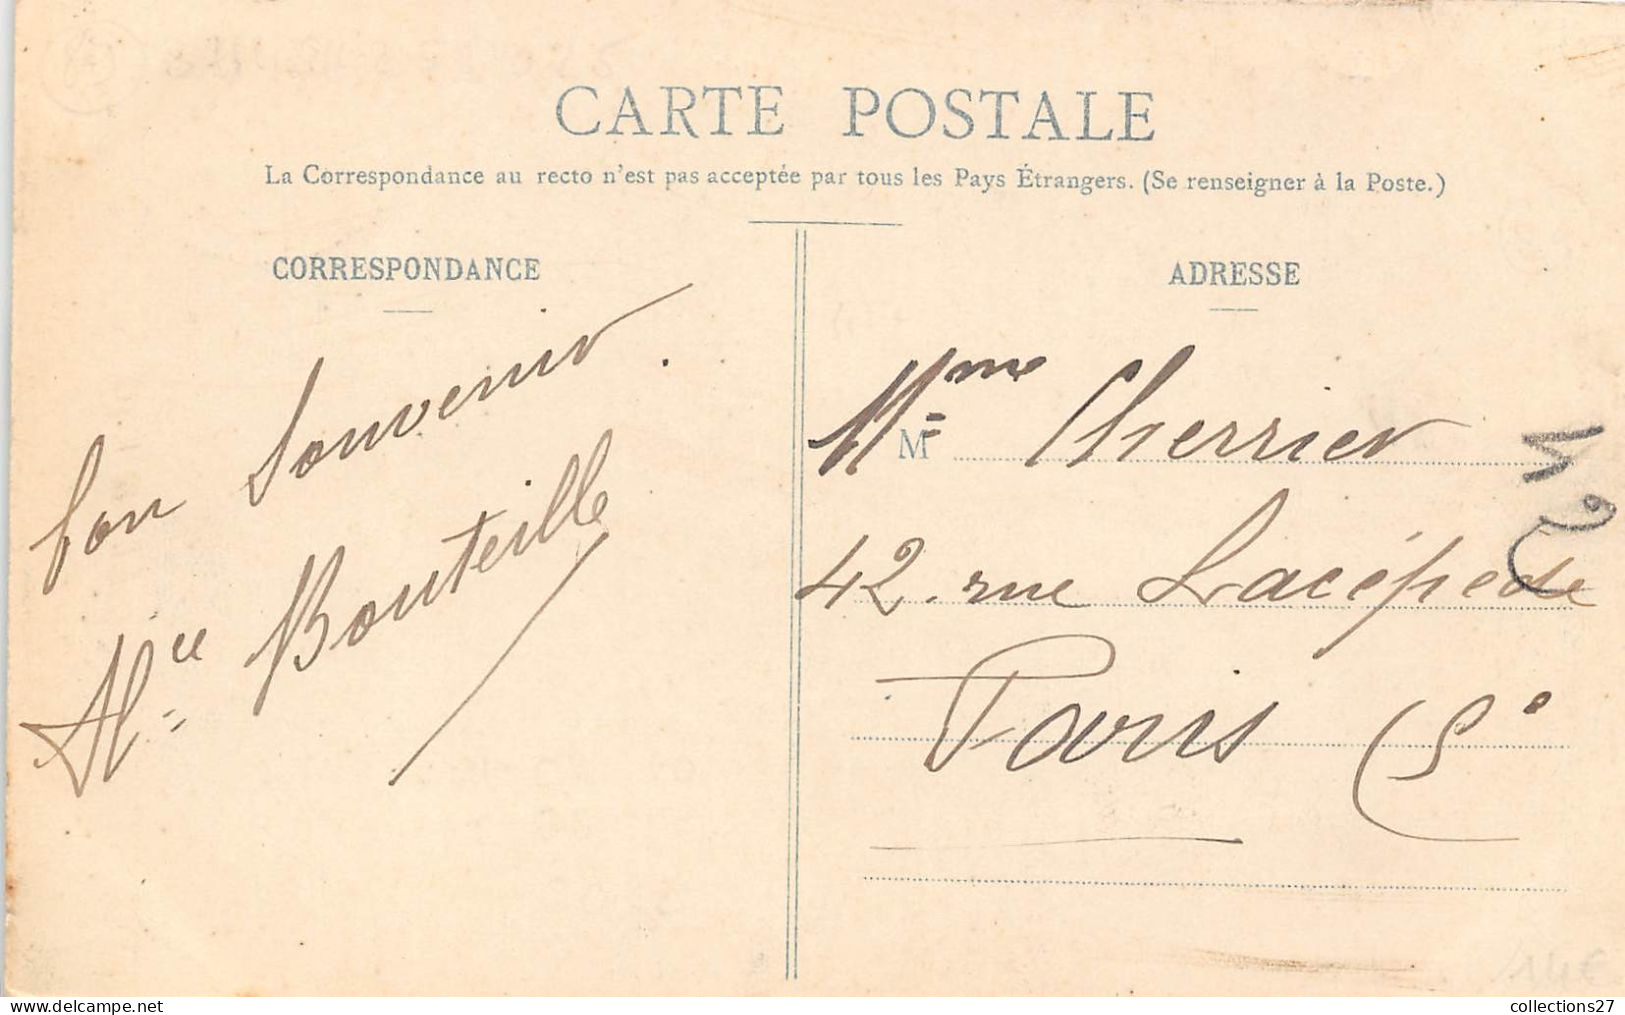 CARTE POSTALE
La Correspondance au recto n'est pas acceptée par tous les Pays Étrangers. (Se renseigner à la Poste.)
CORRESPONDANCE
bon Souvenir.
Bouteille
ADRESSE
M
Mme Cherrier
42. rue Lacépède
Paris 5°
14€
collections27